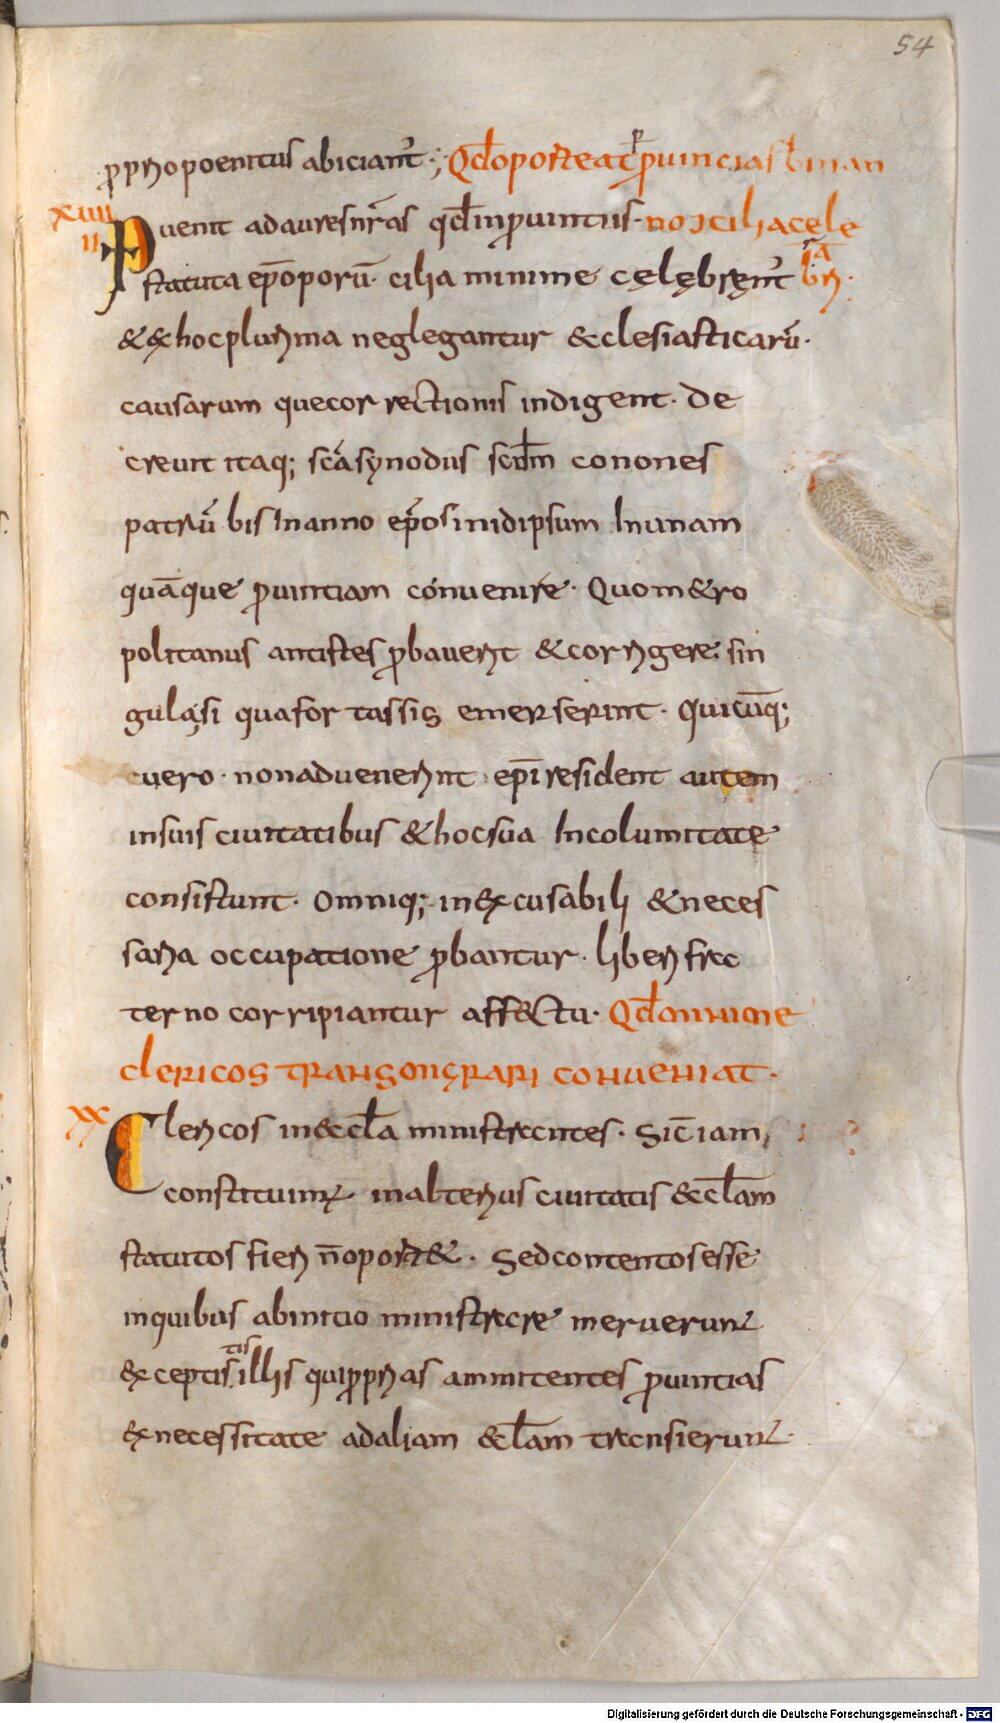 54
ꝓprio poenitus abiciant᷑ ; Qđ oporteat ꝑ ꝓuincias bin an
xuiiii Puenit ad aures nr̄as qđ in ꝓuintiis no ɔcilia cele
statuta ep̄oporū. cilia minime cęlębręnt᷑ bri.
& ex hoc plurima neglegantur & clesiasticarū.
causarum que correctionis indigent. De
creuit itaq; sc̄a synodus scđm conones
patrū bis In anno ep̄os in idipsum In unam
quāque ꝓuintiam conuenire. Quo m&ro
politanus antistes ꝓbauerit & corrigere. sin
gula si qua fortassis emerserint. Quicūq;
uero. non aduenerint ep̄i resident autem
in suis ciuitatibus & hoc sua Incolumitate
consistunt. Omniq; in excusabili & neces
saria occupatione ꝓbantur. liberi frac
terno corripiantur affectu. Qđ
clericos conueniat.
xx Clericos in &cc̄la ministrantes. Sic̄ iam
constituim᷒ in alterius ciuitatis &cc̄lam
statutos fieri nō oport&. Sed contentos esse
in quibus ab initio ministrare meruerunt
exceptis tis illis qui ꝓprias ammitentes ꝓuintias
ex necessitate ad aliam &cc̄lam transierunt.
Digitalisierung gefördert durch die Deutsche Forschungsgemeinschaft - DFG